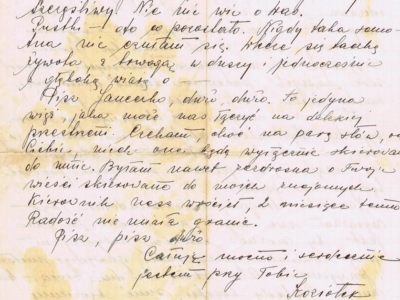 Szczęśliwy. Nic nie wie o nas.
Pustki – oto co pozostało. Nigdy taka samo-
tna nie czułam się. Wiesz
żywota z trwogą w duszy i jednocześnie
z głęboką wiarą o —
Pisz Janeczko, dużo, dużo. To jedyna
więź, jaka może nas łączyć na dalekiej
przestrzeni. Czekam choć na parę słów od
Ciebie, niech one będą wyłącznie skierowane
do mnie. Byłam nawet zazdrosna o Twoje
wieści skierowane do moich znajomych
Kierownik nasz wrócił, 2 miesiące temu
Radość nie miała granic.
Pisz, pisz dużo.
Całuję mocno i serdecznie
jestem przy Tobie
Koziołek